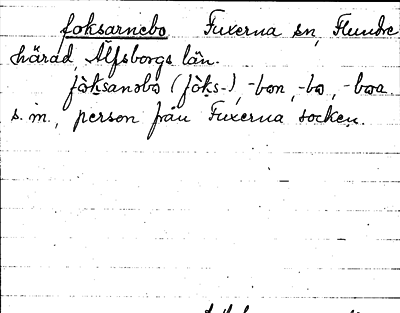 foksarnebo Fuxerna sn, Flundre
härad, Älfsborgs län.
fòksanəbo (fòks-), -bon, -bo, -boa
s. m., person från Fuxerna socken.